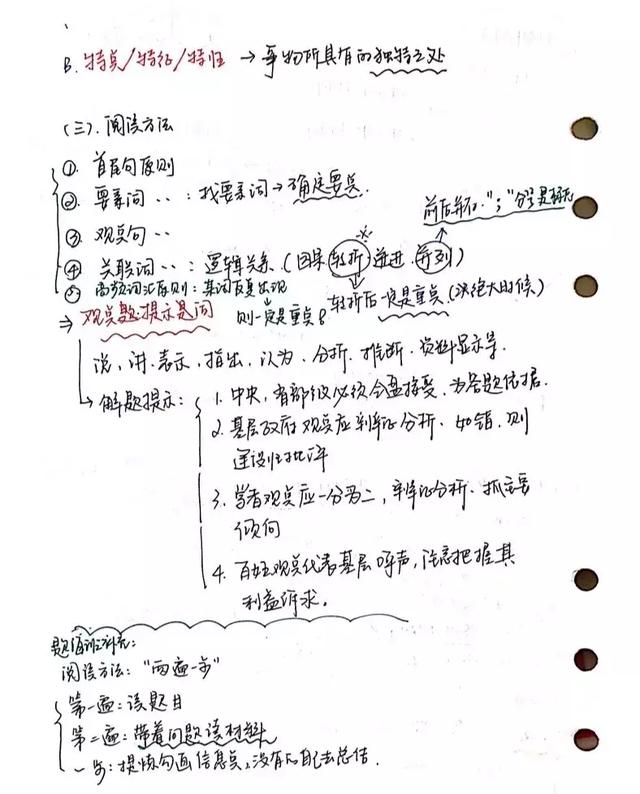 B. 特点/特征/特性 → 事物所具有的独特之处
(三). 阅读方法
① 首尾句原则
② 要素词 ‥ : 找要素词 → 确定要点.
前后并列. "; " 分号是标志
③ 观点句 ‥
④ 关联词 ‥ : 逻辑关系 (因果 转折 递进 并列)
⑤ 高频词汇原则: 某词反复出现 则一定是重点
转折后一定是重点 (绝大时候)
⇒ 观点题提示是问
说, 讲. 表示, 指出, 认为. 分析. 推断. 资料显示等.
→ 解题提示:
1. 中央, 省部级必须全盘接受, 为答题依据.
2. 基层政府观点应辩证分析. 如错, 则
建设性批评
3. 学者观点应一分为二, 辩证分析. 抓主要
倾向
4. 百姓观点代表基层呼声, 注意把握其
利益诉求.
补充:
阅读方法: "两遍一步"
第一遍: 读题目
第二遍: 带着问题读材料
一步: 提炼勾画信息点, 没有自己去总结.